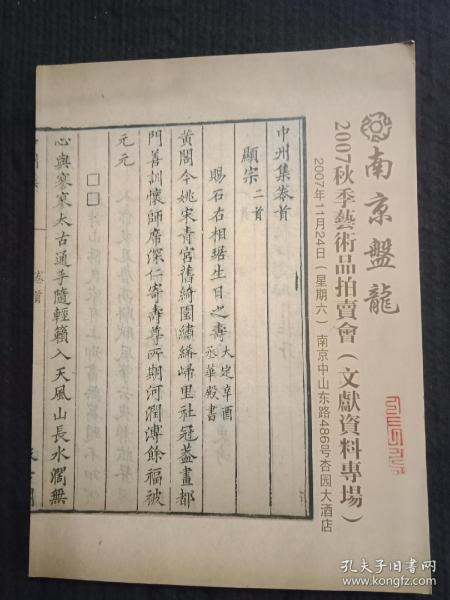 南京盤龍
2007秋季藝術品拍賣會（文獻資料專場）
2007年11月24日（星期六） 南京中山东路486号杏园大酒店
中州集卷首
顯宗二首
賜石右相琚生日之壽 大定辛酉 承華殿書
黃閣今姚宋青宮舊綺園繡絺歸里社冠蓋畫都
門善訓懷師席深仁寄壽尊所期河潤溥餘福被
元元
□□
心與寒寒太古通手隨輕籟入天風山長水濶無
孔夫子旧书网
www.kongfz.com